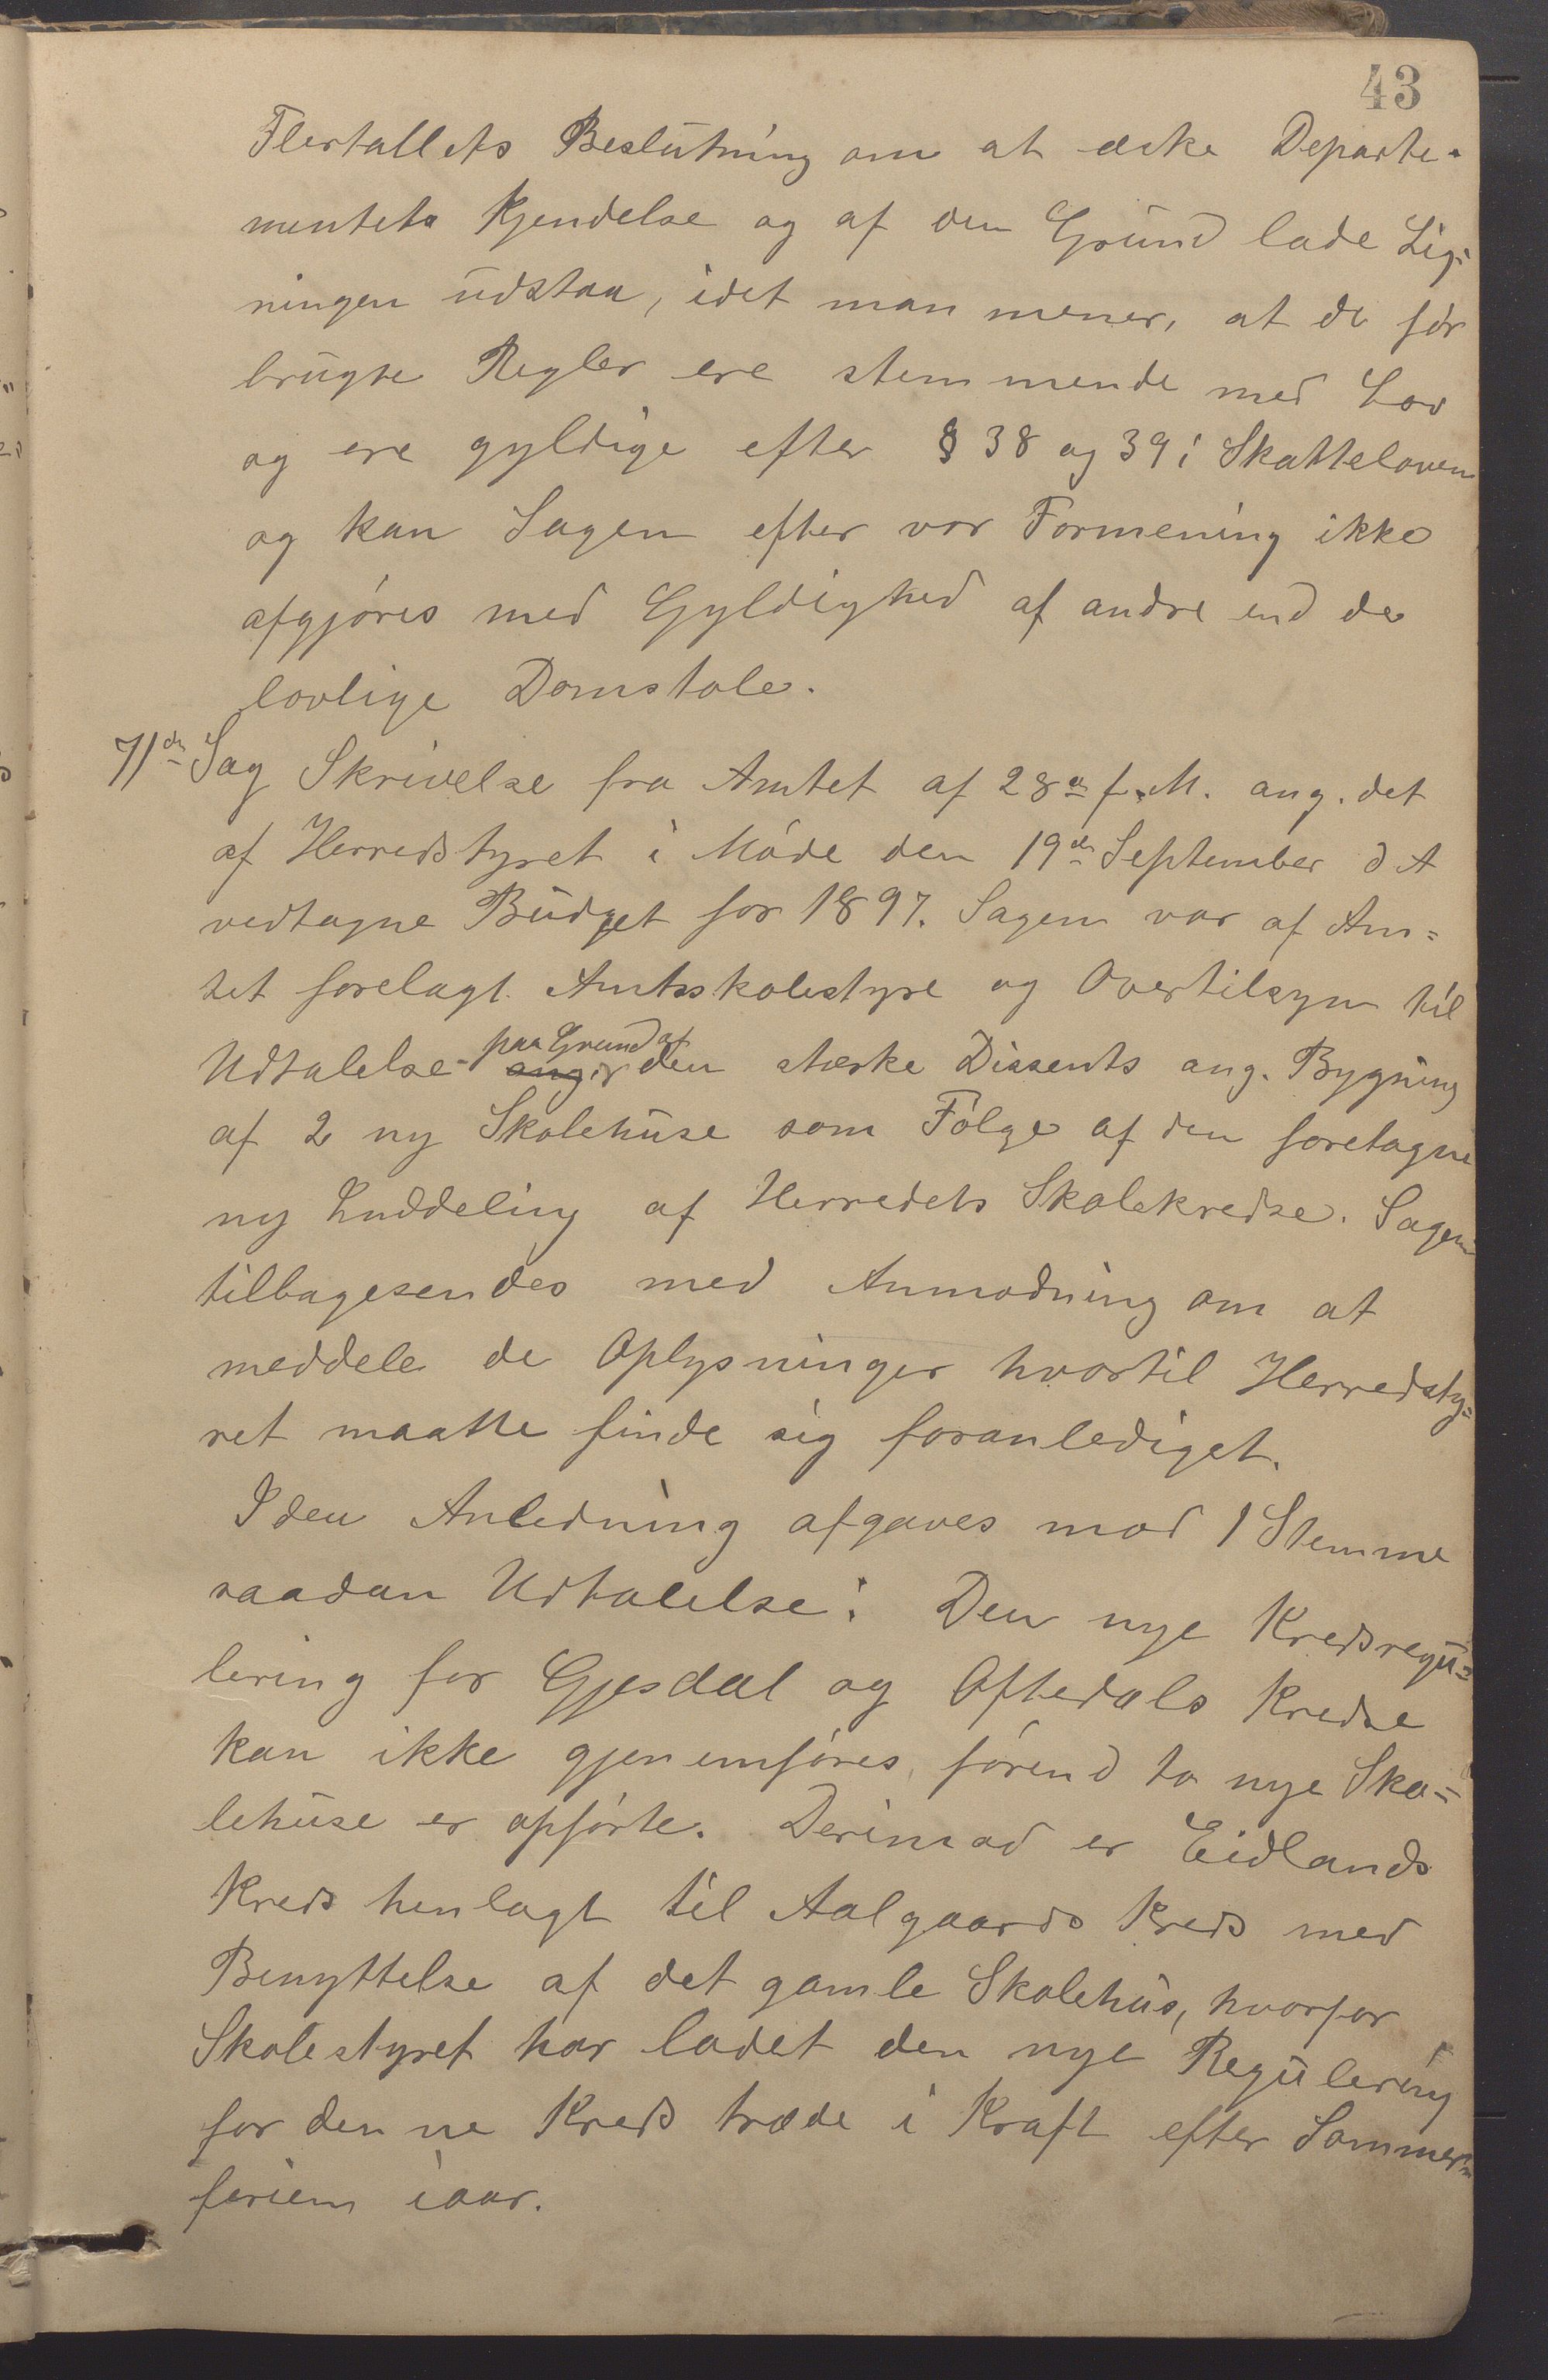 43
Flertallets Beslutning om at æske Departe-
mentets Kjendelse og af den Grund lade Lig-
ningen udstaa, idet man mener, at de før
brugte Regler ere stemmende med Lov
og ere gyldige efter § 38 og 39 i Skatteloven
og kan Sagen efter vor Formening ikke
afgjøres med Gyldighed af andre end de
lovlige Domstole.
71de Sag Skrivelse fra Amtet af 28de f. M. ang. det
af Herredstyret i Møde den 19de September d A
vedtagne Budget for 1897. Sagen var af Am=
tet forelagt Amtsskolestyre og Overtilsyn til
paa Grund af
Udtalelse ang. den stærke Dissents ang. Bygning
af 2 ny Skolehuse som Følge af den foretagne
ny Inddeling af Herredets Skolekredse. Sagen
tilbagesendes med Anmodning om at
meddele de Oplysninger hvortil Herredsty=
ret maatte finde sig foranlediget.
I den Anledning afgaves mod 1 Stemme
saadan Udtalelse: Den nye Kredsregu=
lering for Gjesdal og Oftedals Kredse
kan ikke gjenemføres, førend to nye Sko=
lehuse er opførte. Derimod er Eidlands
Kreds henlagt til Aalgaards Kreds med
Benyttelse af det gamle Skolehus, hvorfor
Skolestyret har ladet den nye Regulering
for denne Kreds træde i Kraft efter Sommer=
ferien iaar.